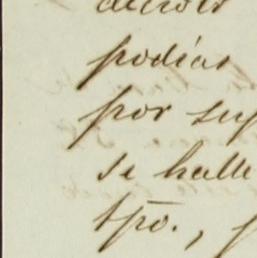 podias
por sup
se halle
tpo.,